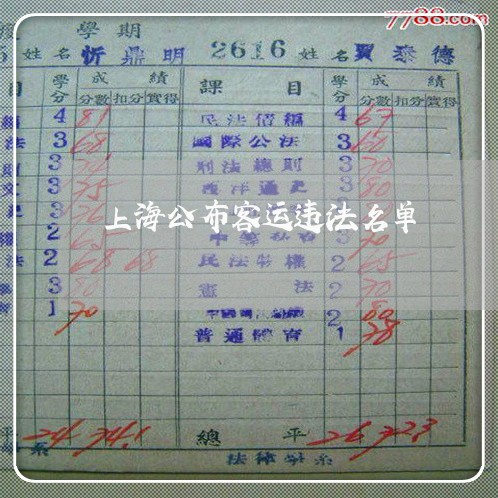 7788.com
學期
姓名 忻鼎明 2616 姓名 賈泰德
目 學分 成績 課目 學分 成績
分數 扣分 實得 分數 扣分 實得
4 81 民法債編 4 67
法 3 68 國際公法 3 60
3 刑法總則 3 70
3 75 西洋通史 3 80
3 76
上海公布客运违法名单
2 65 3 70
法 2 68 68 民法物權 2 65
3 80 憲法 2 70
1 70 2 80
普通體育 1 78
平 24 74.1 總平 26 72.3
系 法律學系